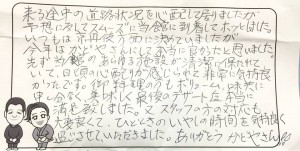 来る途中の道路状況を心配して居りましたが
予想に反してスムーズに当館に到着してホッとしました。
いて
今年はかどやさんにして本当に良かったと思いました。
先ず当館のあらゆる施設が清潔に保たれて
いて、日頃の心配りが感じられて非常に気持良
かったです。御料理のボリューム、味共に
申し分なく美味しく最後のデザート迄
満足致しました。スタッフの対応も
大変良くて、ひとときのいやしの時間を気持良く
過ごさせていただきました。ありがとうかどやさん